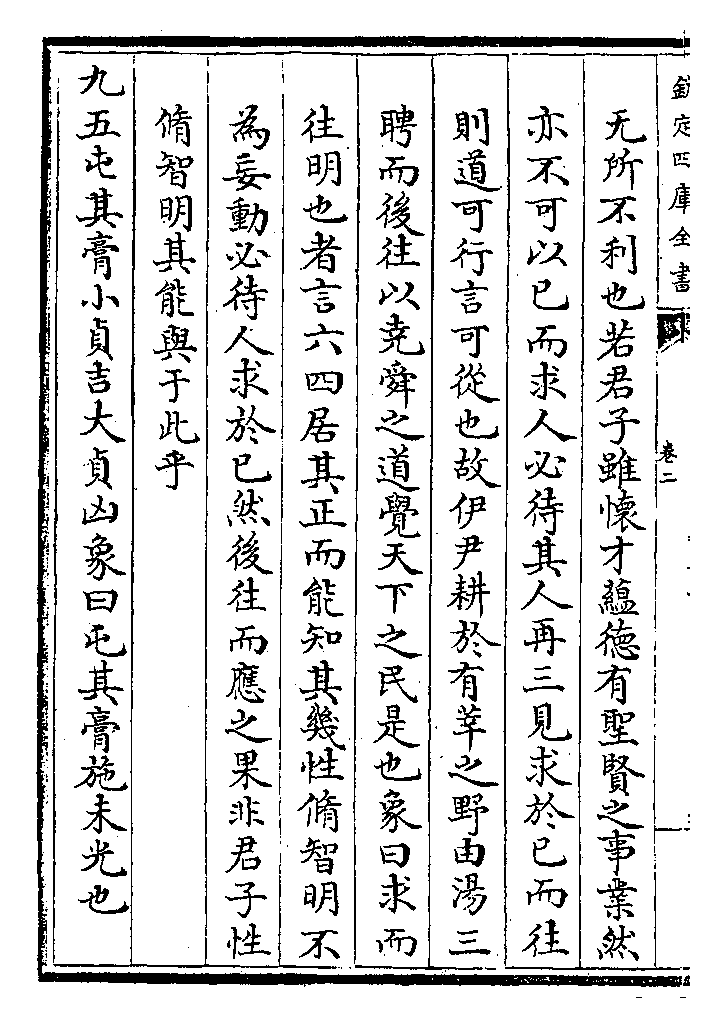 欽定四庫全書
卷二
无所不利也若君子雖懷才蘊德有聖賢之事業然
亦不可以已而求人必待其人再三見求於已而往
則道可行言可從也故伊尹耕於有莘之野由湯三
聘而後往以堯舜之道覺天下之民是也象曰求而
往明也者言六四居其正而能知其幾性脩智明不
為妄動必待人求於已然後往而應之果非君子性
脩智明其能與于此乎
九五屯其膏小貞吉大貞凶象曰屯其膏施未光也